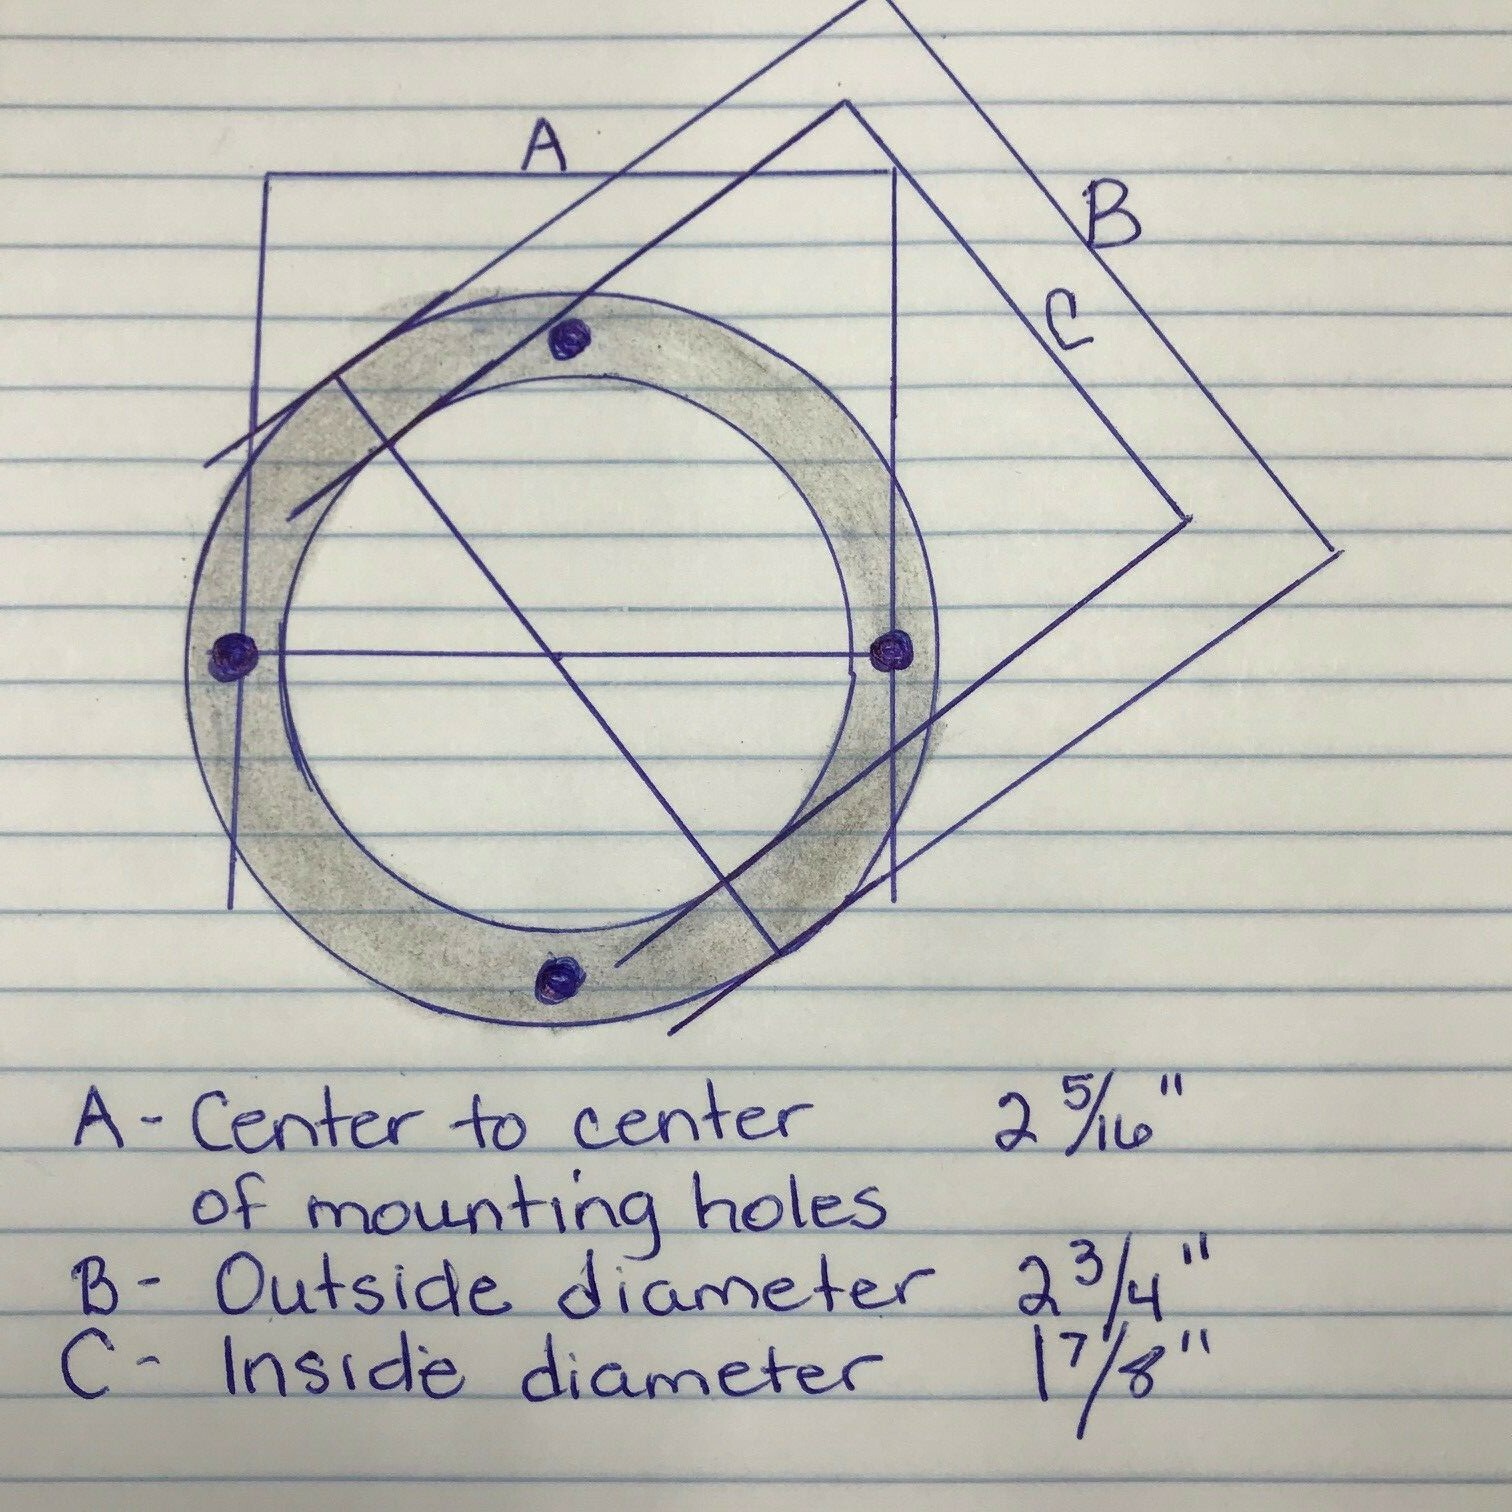 A
B
C
A - Center to center 2 5/16"
of mounting holes
B - Outside diameter 2 3/4"
C - Inside diameter 1 7/8"